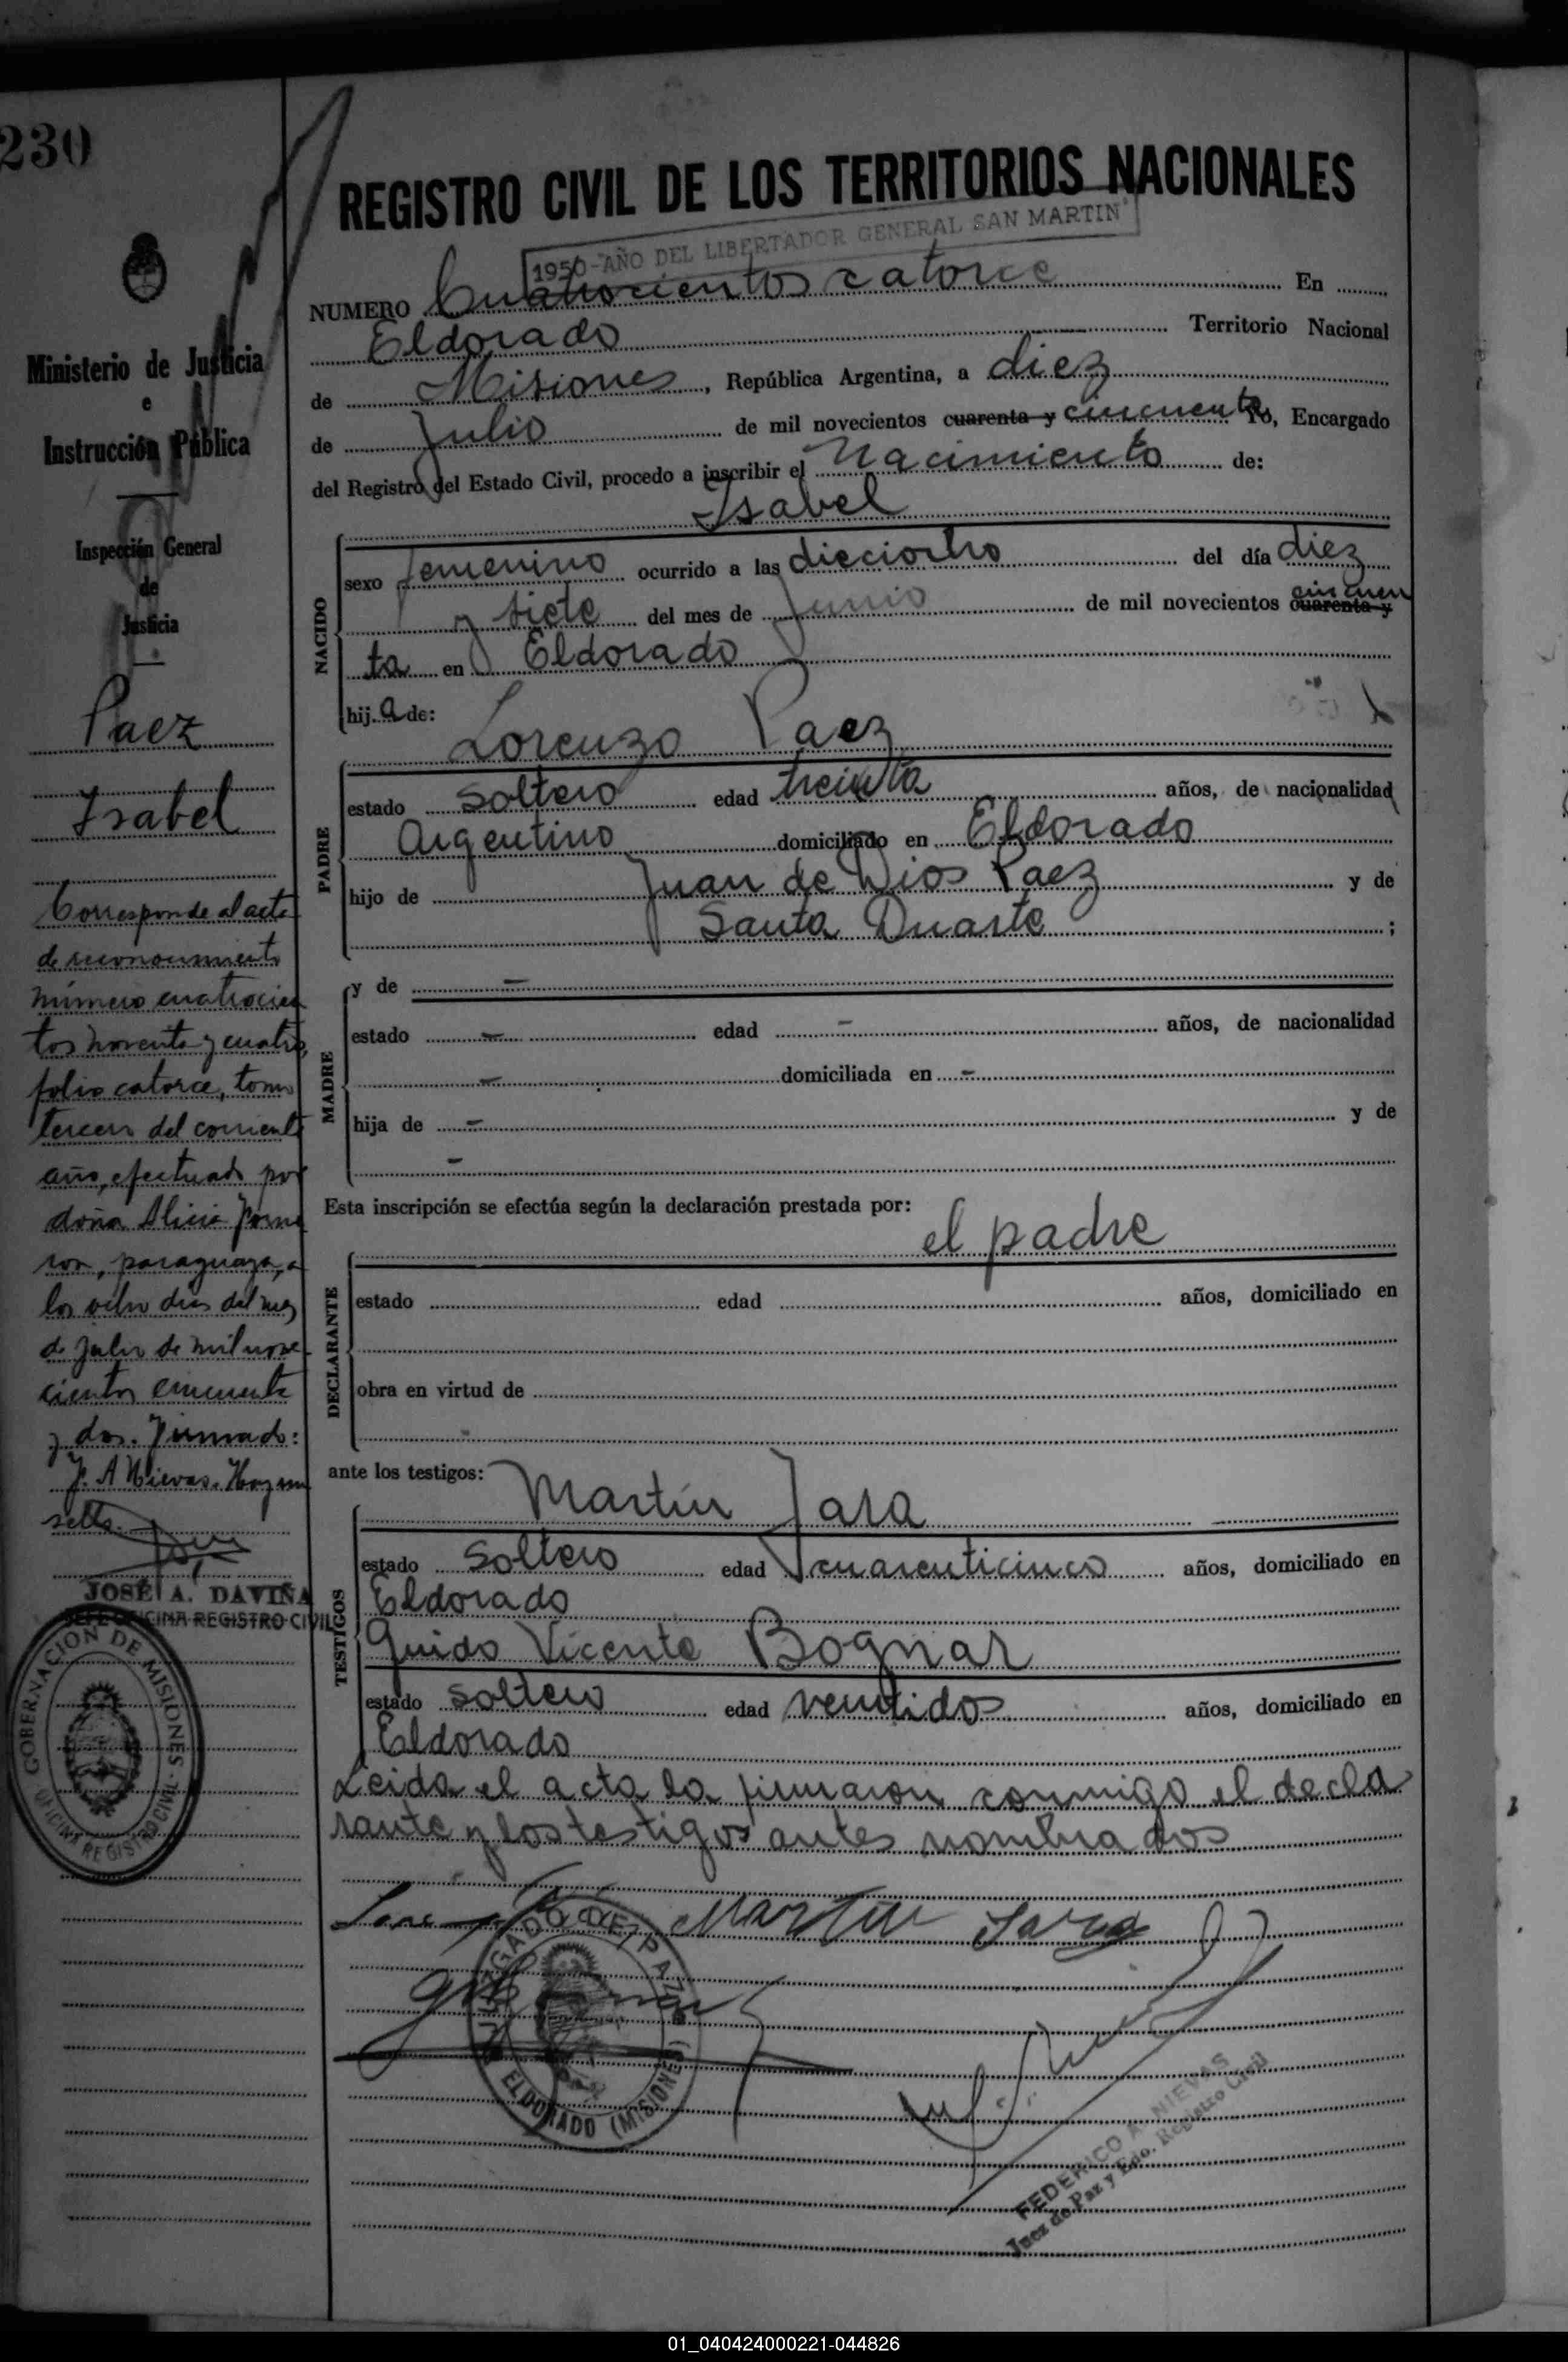 230
REGISTRO CIVIL DE LOS TERRITORIOS NACIONALES
1950-AÑO DEL LIBERTADOR GENERAL SAN MARTIN
NUMERO Cuatrocientos catorce En
Eldorado Territorio Nacional
de Misiones, República Argentina, a diez
de Julio de mil novecientos cuarenta y cincuenta Yo, Encargado
del Registro del Estado Civil, procedo a inscribir el Nacimiento de:
Isabel
NACIDO
sexo femenino ocurrido a las dieciocho del día diez
cincuen
y siete del mes de Junio de mil novecientos cuarenta y
ta en Eldorado
hija de:
Lorenzo Paez
PADRE
estado soltero edad treinta años, de nacionalidad
Argentino domiciliado en Eldorado
hijo de Juan de Dios Paez y de
Santa Duarte ;
MADRE
y de -
estado - edad - años, de nacionalidad
- domiciliada en -
hija de - y de
-
Esta inscripción se efectúa según la declaración prestada por:
el padre
DECLARANTE
estado edad años, domiciliado en
obra en virtud de
ante los testigos:
Martín Jara
TESTIGOS
estado soltero edad cuarenticinco años, domiciliado en
Eldorado
Guido Vicente Bognar
estado soltero edad ventidos años, domiciliado en
Eldorado
Leida el acta la firmaron conmigo el decla
rante y los testigos antes nombrados
Martin Jara
JUZGADO DE PAZ
ELDORADO (MISIONES)
FEDERICO A. NIEVAS
Juez de Paz y Edo. Registro Civil
Ministerio de Justicia
e
Instrucción Pública
Inspección General
de
Justicia
Paez
Isabel
Corresponde al acta
de reconocimiento
número cuatrocien
tos noventa y cuatro,
folio catorce, tomo
tercero del corriente
año, efectuado por
doña Alicia
paraguaya, a
los ocho dias del mes
de Julio de mil nove
cientos cincuenta
y dos. Firmado:
F. A Nievas. Hay un
sello.
JOSÉ A. DAVIÑA
JEFE OFICINA REGISTRO CIVIL
GOBERNACION DE MISIONES
OFICINA REGISTRO CIVIL
01_040424000221-044826